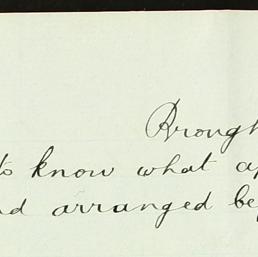 Brough
to know what ap
nd arranged be